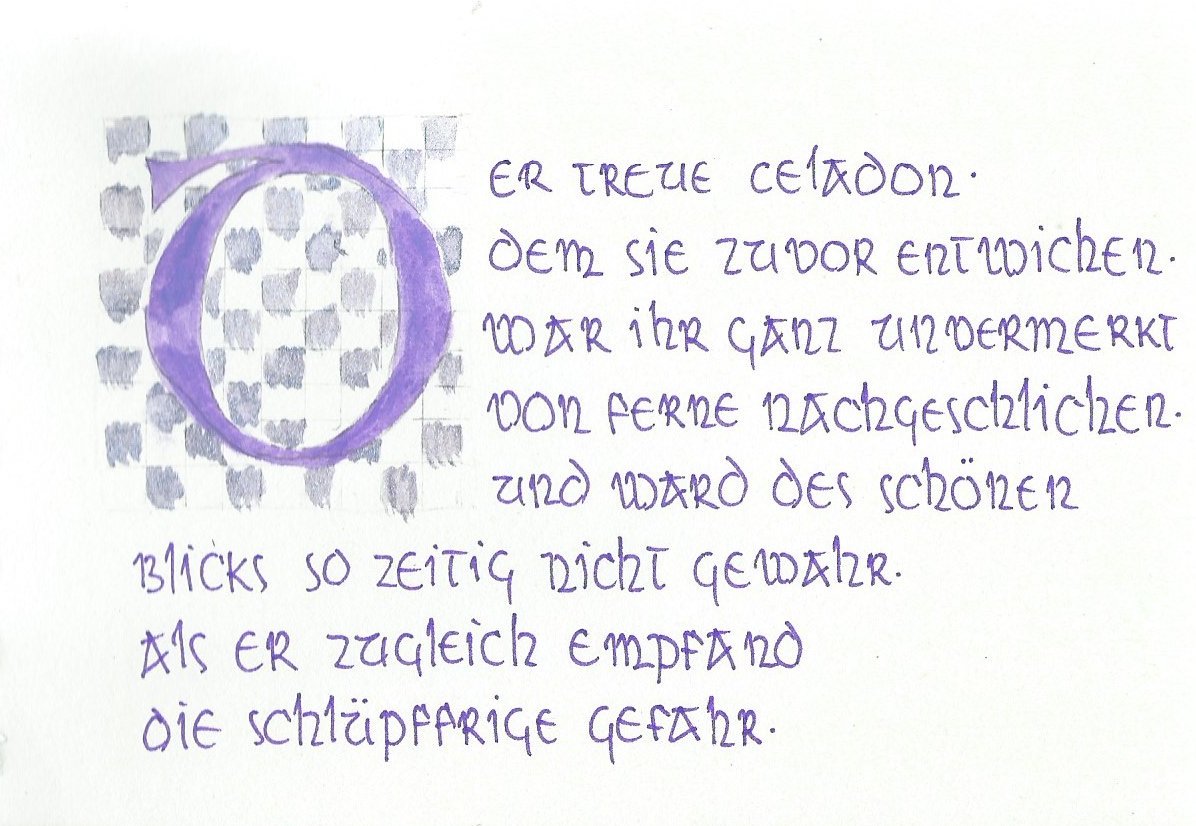 DER TREUE CELADON.
DEM SIE ZUVOR ENTWICHEN.
WAR IHR GANZ UNVERMERKT
VON FERNE NACHGESCHLICHEN.
UND WARD DES SCHÖNEN
BLICKS SO ZEITIG NICHT GEWAHR.
ALS ER ZUGLEICH EMPFAND
DIE SCHLÜPFFRIGE GEFAHR.